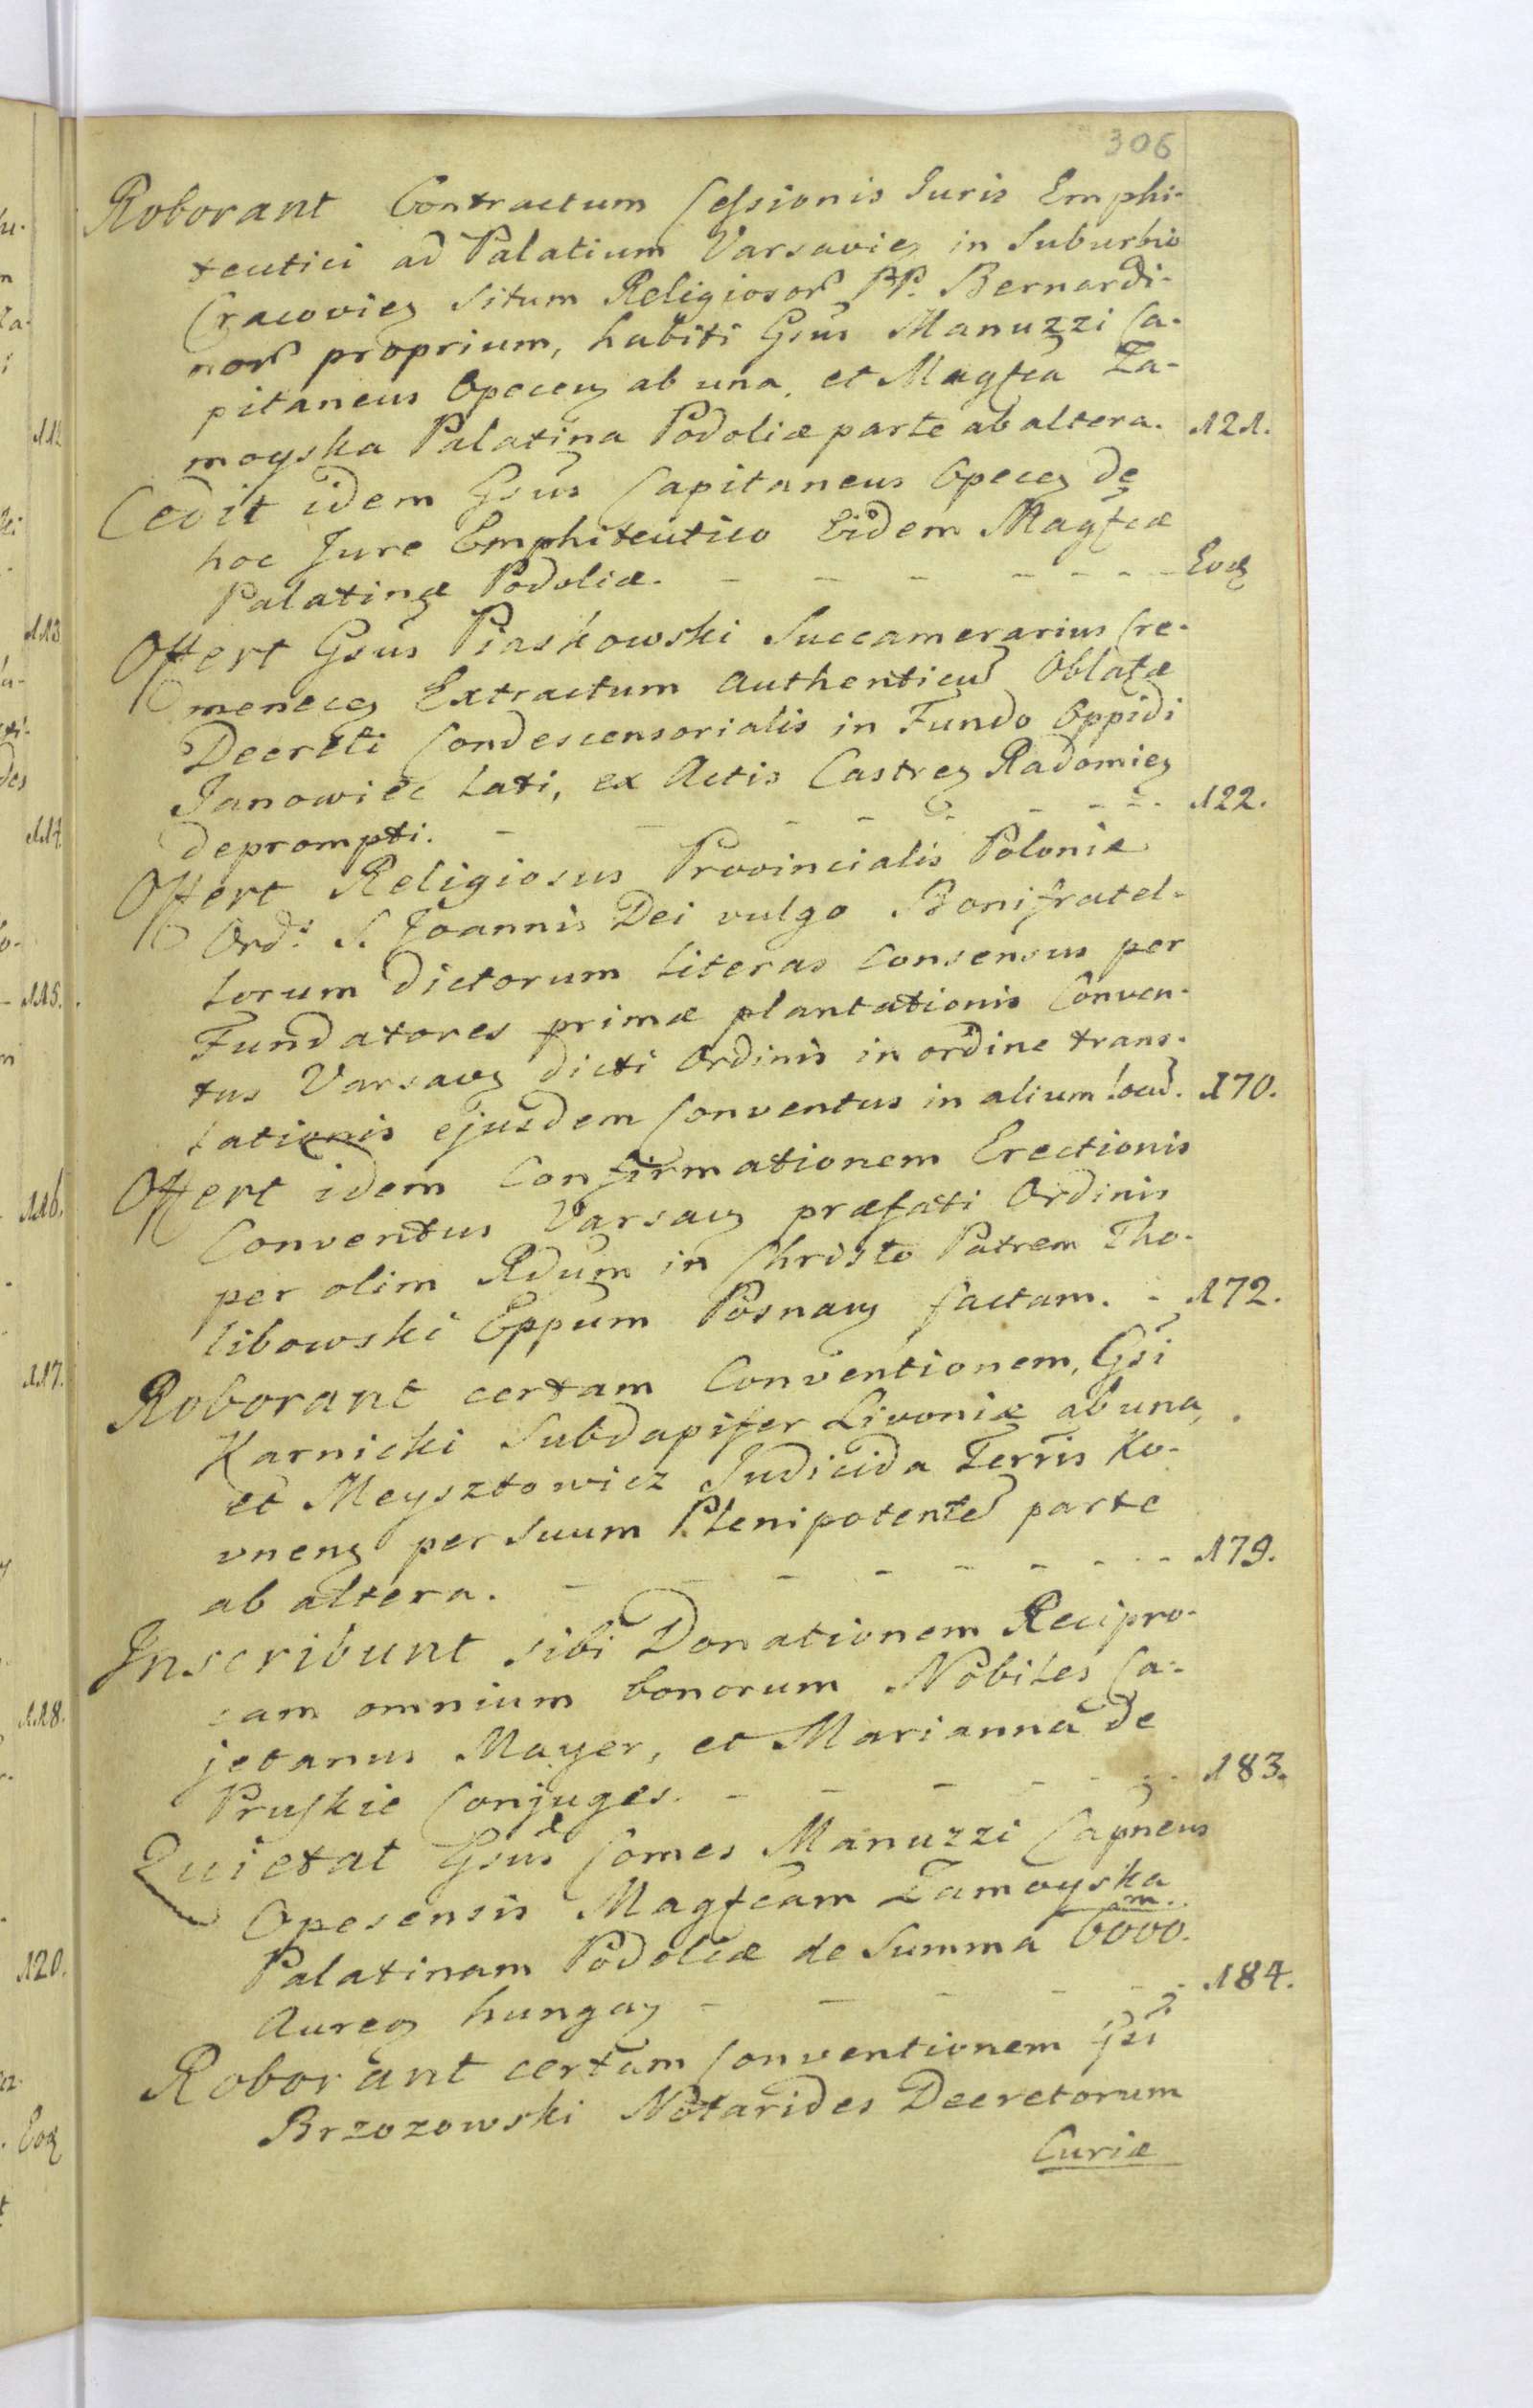 306
Roborant Contractum Cessionis Juris Emphi-
teutici ad Palatium Varsavien in Suburbio
Cracovien situm Religiosor PP. Bernardi-
nor proprium, habiti Gsus Manuzzi Ca-
pitaneus Opecen ab una, et Magfca Za-
moyska Palatina Podoliæ parte ab altera. 121.
Cedit idem Gsus Capitaneus Opecen de
hoc Jure Emphiteutico Eidem Magfcæ
Palatinæ Podoliæ. - - - - - - - Eoq
Offert Gsus Piaskowski Succamerarius Cre-
menecen Extractum Authenticum Oblatæ
Decreti Condescensorialis in Fundo Oppidi
Janowiec lati, ex Actis Castren Radomien
deprompti. - - - - - - - 122.
Offert Religiosus Provincialis Poloniæ
Ord: S. Joannis Dei vulgo Bonifratel-
lorum dictorum Literas Consensus per
Fundatores primæ plantationis Conven-
tus Varsavn dicti Ordinis in ordine trans-
lationis ejusdem Conventus in alium locum. 170.
Offert idem Confirmationem Erectionis
Conventus Varsavn præfati Ordinis
per olim Rdum in Christo Patrem Tho-
libowski Eppum Posnavn factam. - 172.
Roborant certam Conventionem, Gsi
Karnicki Subdapifer Livoniæ ab una,
et Meysztowicz Judicida Terris Ko-
vnen per suum Plenipotentem parte
ab altera. - - - - - - - 179.
Inscribunt sibi Donationem Recipro-
cam omnium bonorum Nobiles Ca-
jetanus Mayer, et Marianna de
Pruskie Conjuges. - - - - - - 183.
Quietat Gsus Comes Manuzzi Capneus
Opesensis Magfcam Zamoyska
Palatinam Podoliæ de Summa 6000.
m.
Aureor hungar - - - - - 184.
Roborant certam Conventionem Gsi
Brzozowski Notarides Decretorum
Curiæ